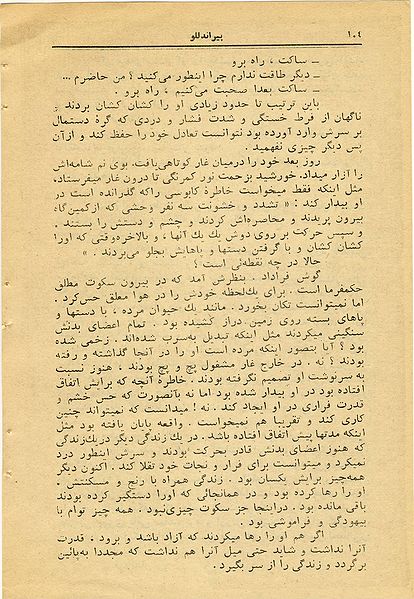 ۱۰۴
پیراندللو
ــ ساکت ، راه برو
ــ دیگر طاقت ندارم چرا اینطور می‌کنید ؟ من حاضرم ...
ــ ساکت بعدا صحبت می‌کنیم ، راه برو .
باین ترتیب تا حدود زیادی او را کشان کشان بردند و
ناگهان از فرط خستگی و شدت فشار و دردی که گرهٔ دستمال
بر سرش وارد آورده بود نتوانست تعادل خود را حفظ کند و ازآن
پس دیگر چیزی نفهمید .
روز بعد خود را درمیان غار کوتاهی‌یافت. بوی نم شامه‌اش
را آزار میداد. خورشید بزحمت نور کمرنگی تا درون غار میفرستاد،
مثل اینکه فقط میخواست خاطرهٔ کابوسی راکه گذرانده است در
او بیدار کند : « تشدد و خشونت سه نفر وحشی که ازکمین‌گاه
بیرون پریدند و محاصره‌اش کردند ، چشم و دستش را بستند .
و سپس حرکت بر روی دوش یك یك آنها ، و بالاخره‌وقتی که اورا
کشان کشان و با گرفتن دستها و پاهایش بجلو می‌بردند . »
حالا در چه نقطه‌ئی است ؟
گوش فراداد . بنظرش آمد که در بیرون سکوت مطلق
حکمفرما است . برای یك‌لحظه خودش را در هوا معلق حس‌کرد .
اما نمیتوانست تکان بخورد . مانند یك حیوان مرده ، با دستها و
پاهای بسته روی زمین دراز کشیده بود . تمام اعضای بدنش
سنگینی میکردند مثل اینکه تبدیل به‌سرب شده‌اند . زخمی شده
بود ؟ آیا بتصور اینکه مرده است او را در آنجا گذاشته و رفته
بودند ؟ نه . در خارج غار مشغول پچ و پچ بودند ، هنوز نسبت
به سرنوشت او تصمیم نگرفته بودند . خاطرهٔ آنچه که برایش اتفاق
افتاده بود در او بیدار شده بود اما نه بآنصورت که حس خشم و
قدرت فراری در او ایجاد کند . نه ! میدانست که نمیتواند چنین
کاری کند و تقریبا هم نمیخواست . واقعه پایان یافته بود مثل
اینکه مدتها پیش اتفاق افتاده باشد . در یك زندگی دیگر دریك‌زندگی
که هنوز اعضای بدنش قادر بحرکت بودند و سرش اینطور درد
نمیکرد و میتوانست برای فرار و نجات خود تقلا کند . اکنون دیگر
همه‌چیز برایش یکسان بود . زندگی همراه با رنج و مسکنتش ،
او را رها کرده بود و در همانجائی که اورا دستگیر کرده بودند
باقی مانده بود . دراینجا جز سکوت چیزی‌نبود . همه چیز توام با
بیهودگی و فراموشی بود .
اگر هم او را رها میکردند که آزاد باشد و برود ، قدرت
آنرا نداشت و شاید حتی میل آنرا هم نداشت که مجددا به‌پائین
برگردد و زندگی را از سر بگیرد .